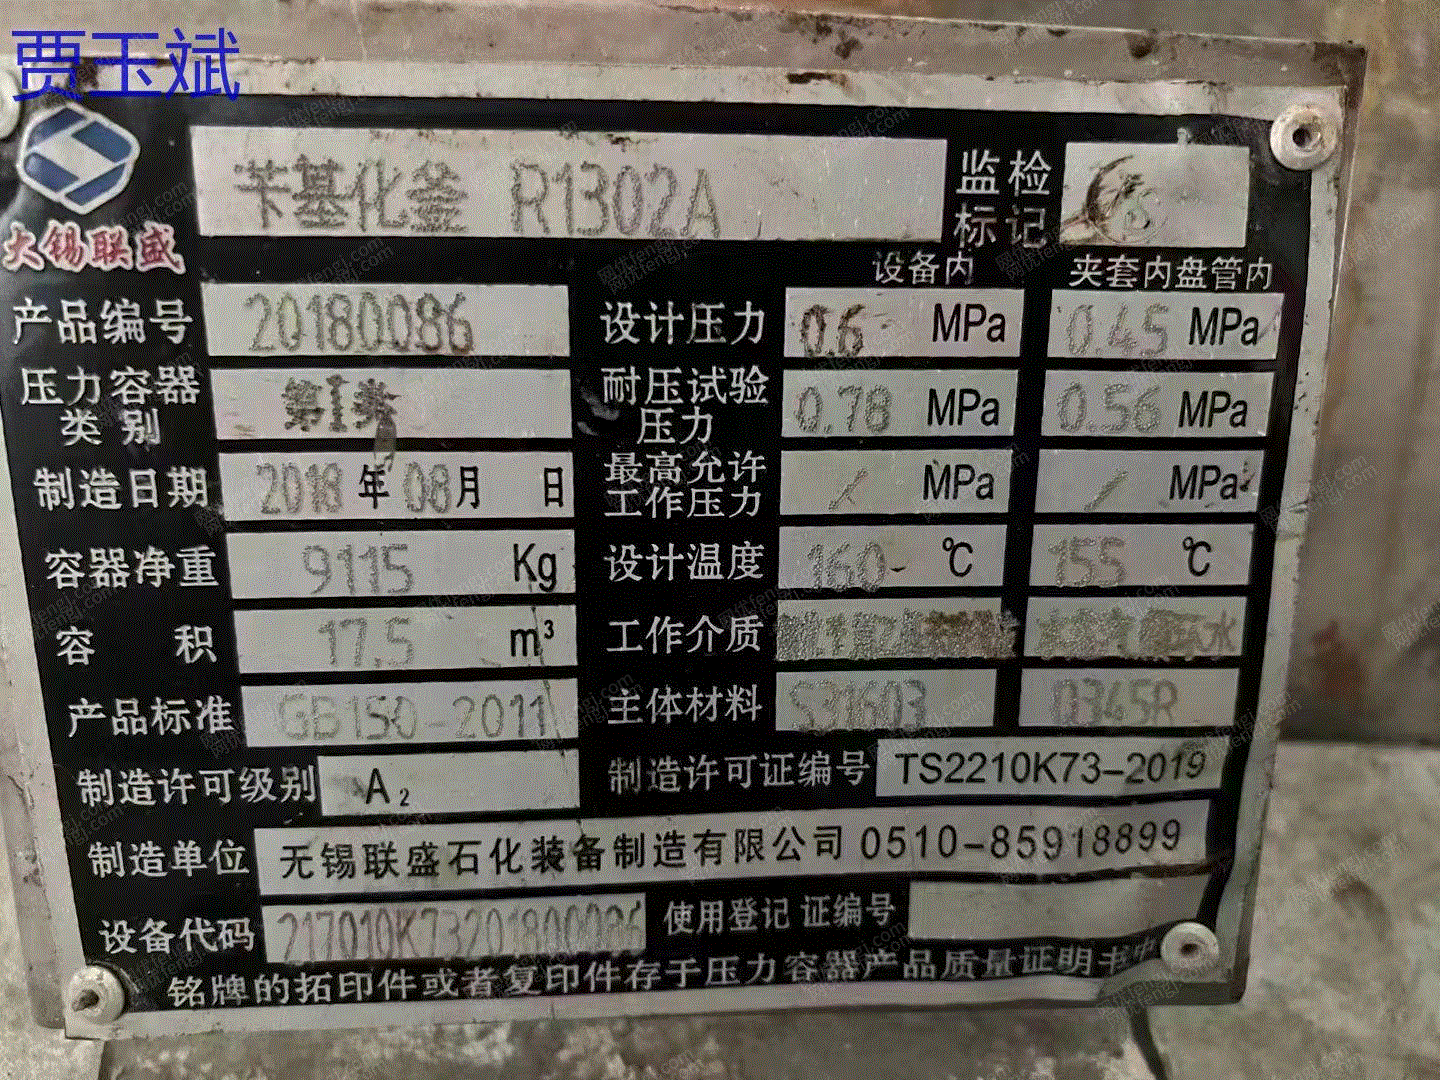 贾玉斌
苄基化釜 R1302A
监检标记
大锡联盛
设备内 夹套内盘管内
产品编号 20180086 设计压力 0.6 MPa 0.45 MPa
压力容器类别 第I类 耐压试验压力 0.78 MPa 0.56 MPa
制造日期 2018年08月 日 最高允许工作压力 / MPa / MPa
容器净重 9115 Kg 设计温度 160 ℃ 155 ℃
容 积 17.5 m³ 工作介质 水
产品标准 GB150-2011 主体材料 S31603 Q345R
制造许可级别 A2 制造许可证编号 TS2210K73-2019
制造单位 无锡联盛石化装备制造有限公司 0510-85918899
设备代码 217010K7320180086 使用登记证编号
铭牌的拓印件或者复印件存于压力容器产品质量证明书中
网优fengj.com